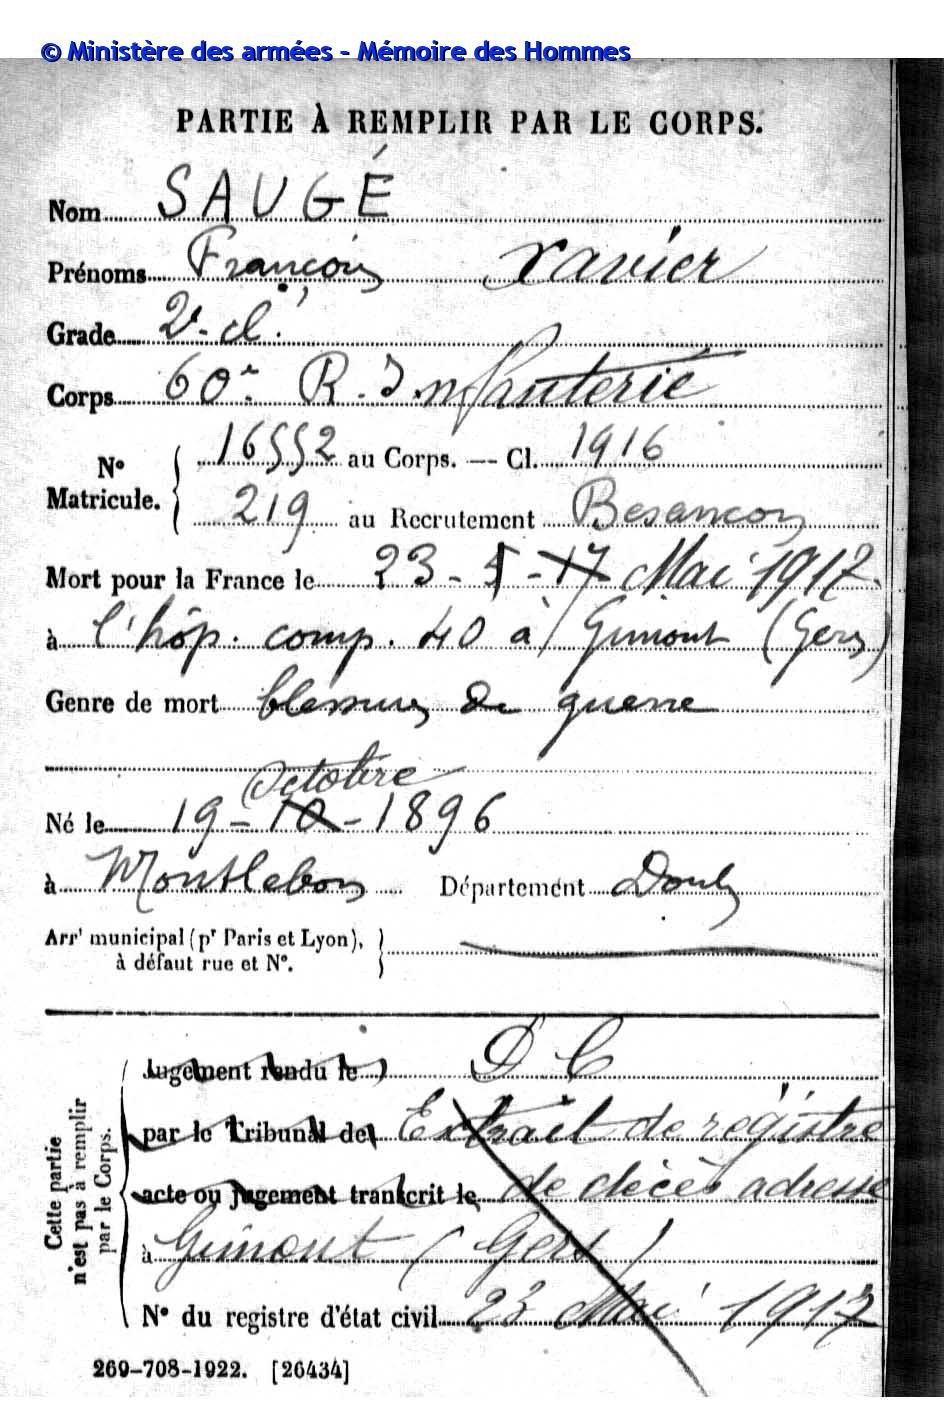 © Ministère des armées - Mémoire des Hommes
PARTIE À REMPLIR PAR LE CORPS.
Nom SAUGÉ
Prénoms François Xavier
Grade 2e cl.
Corps 60e R. Infanterie
No Matricule. 16552 au Corps. — Cl. 1916
219 au Recrutement Besançon
Mort pour la France le 23 - 5 - 17 Mai 1917.
à l'hôp. comp. 40 à Gimont (Gers)
Genre de mort blessures de guerre
Octobre
Né le 19 - 10 - 1896
à Montlebon Département Doubs
Arrt municipal (pr Paris et Lyon),
à défaut rue et No.
Cette partie n'est pas à remplir par le Corps.
Jugement rendu le D C
par le Tribunal de Extrait de registre
acte ou jugement transcrit le de décès adressé
à Gimont (Gers)
No du registre d'état civil 23 Mai 1917
269-708-1922. [26434]